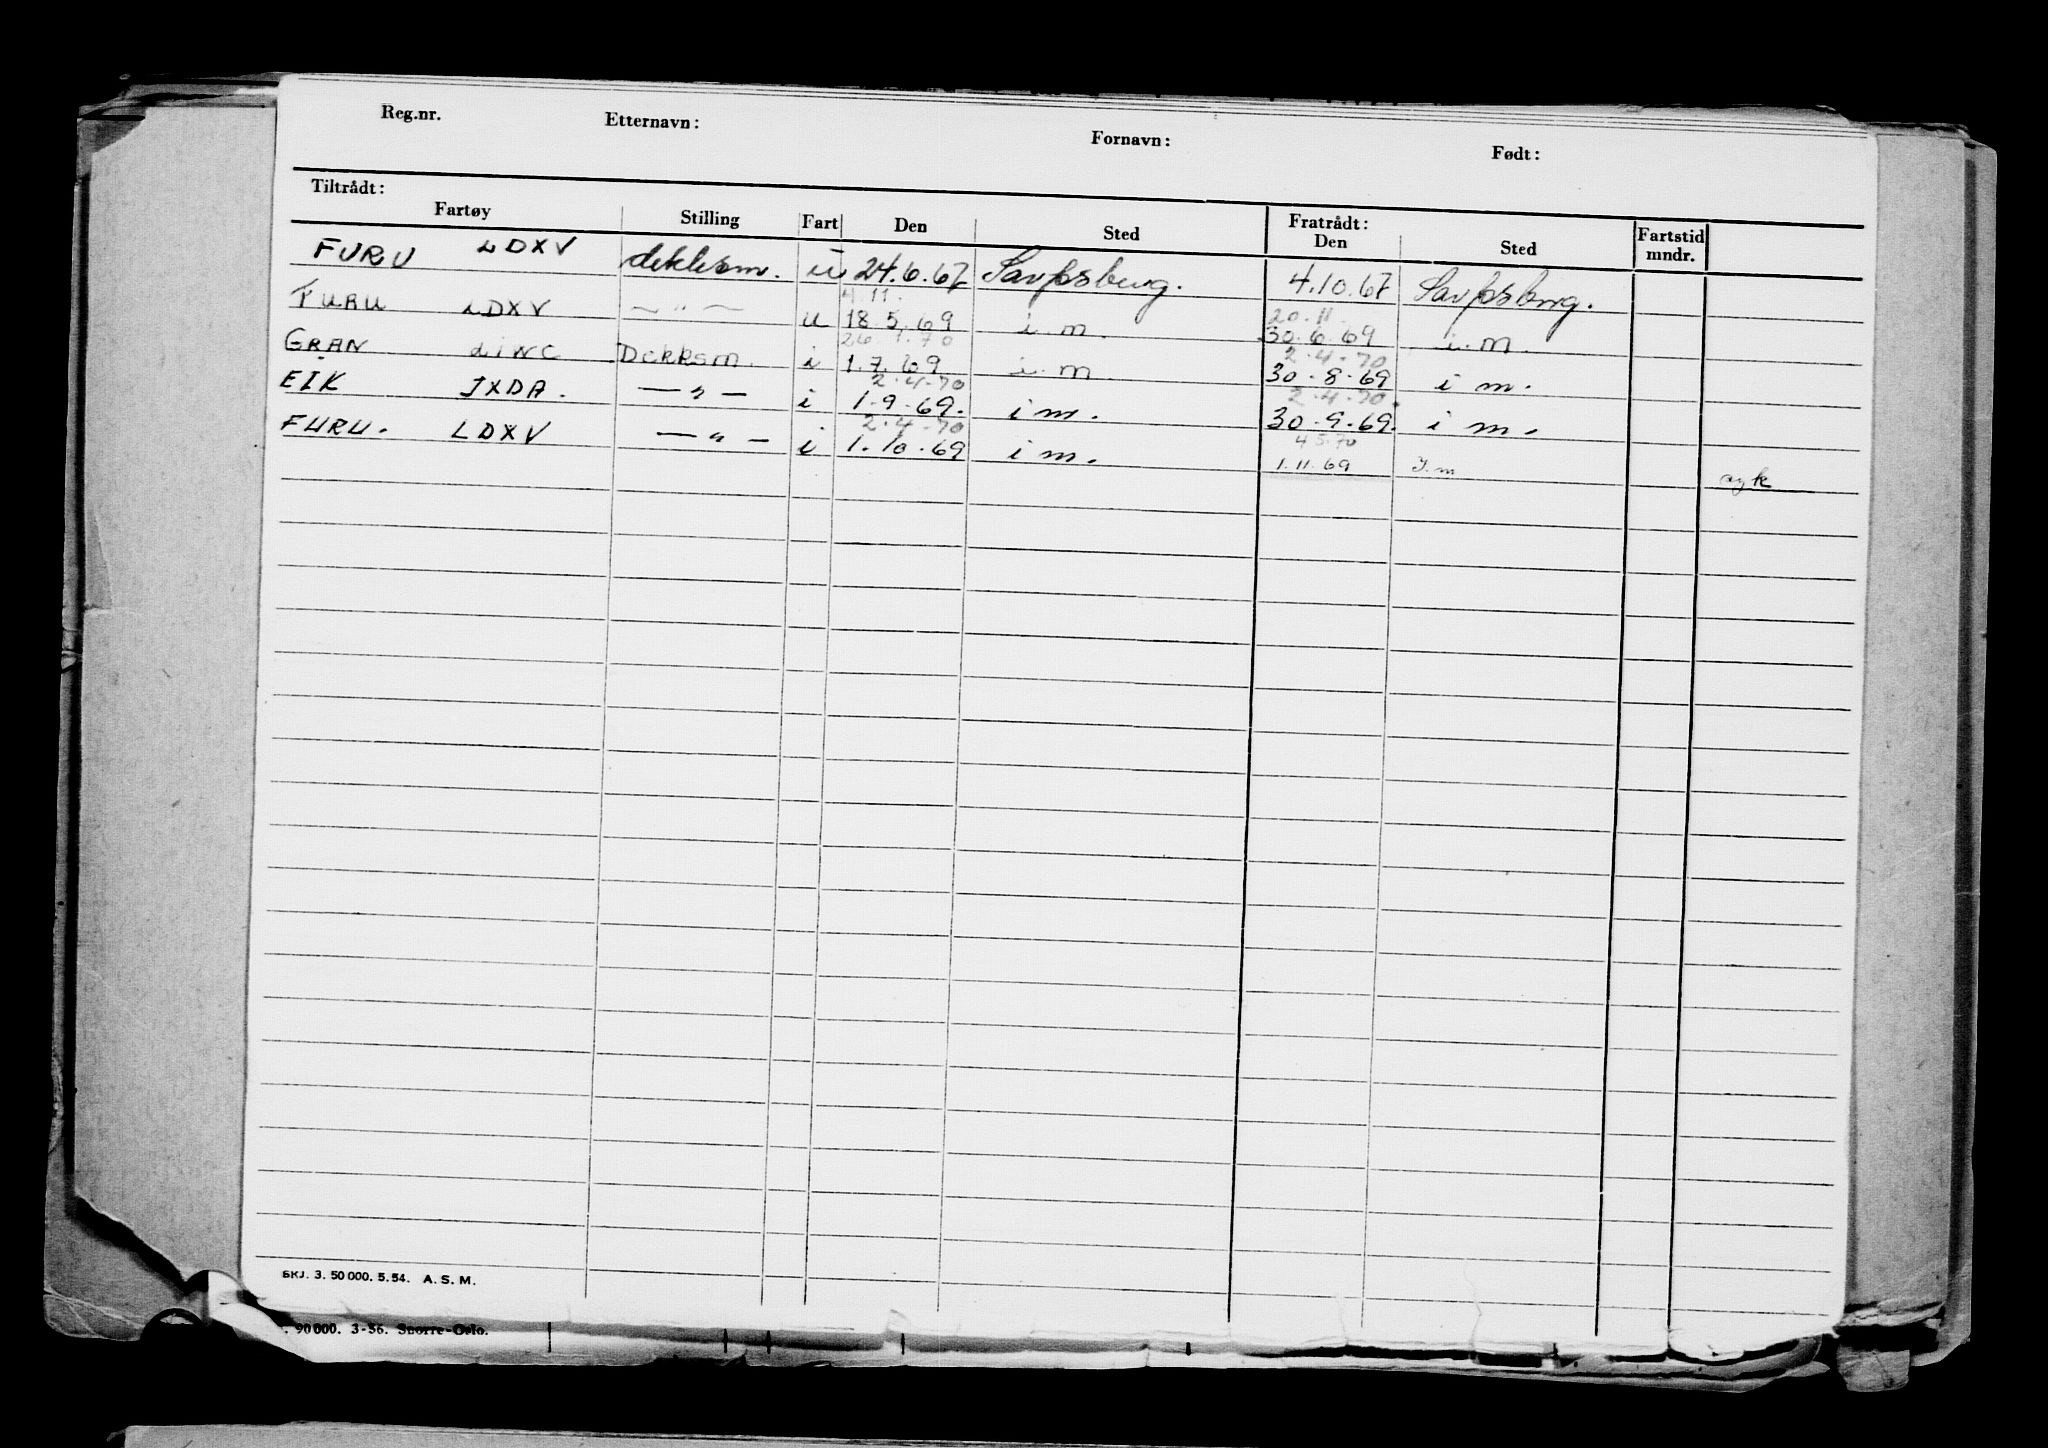 Reg.nr. Etternavn: Fornavn: Født:
Tiltrådt: Fratrådt:
Fartøy Stilling Fart Den Sted Den Sted Fartstid mndr.
FURU LDXV dekksm. u 24.6.67 Sarpsborg. 4.10.67 Sarpsborg.
4.11. 20.11.
FURU LDXV — " — u 18.5.69 i.m. 30.6.69 i.m.
26.1.70 2.4.70
GRAN LINC Dekksm. i 1.7.69 i.m. 30.8.69 i m.
2.4.70 2.4.70.
EIK JXDA. — " — i 1.9.69. i m. 30.9.69. i m.
2.4.70 4.5.70
FURU. LDXV — " — i 1.10.69 i m. 1.11.69 I.m syk
SKJ. 3. 50 000. 5. 54. A. S. M.
. 90 000. 3-56. Snorre-Oslo.